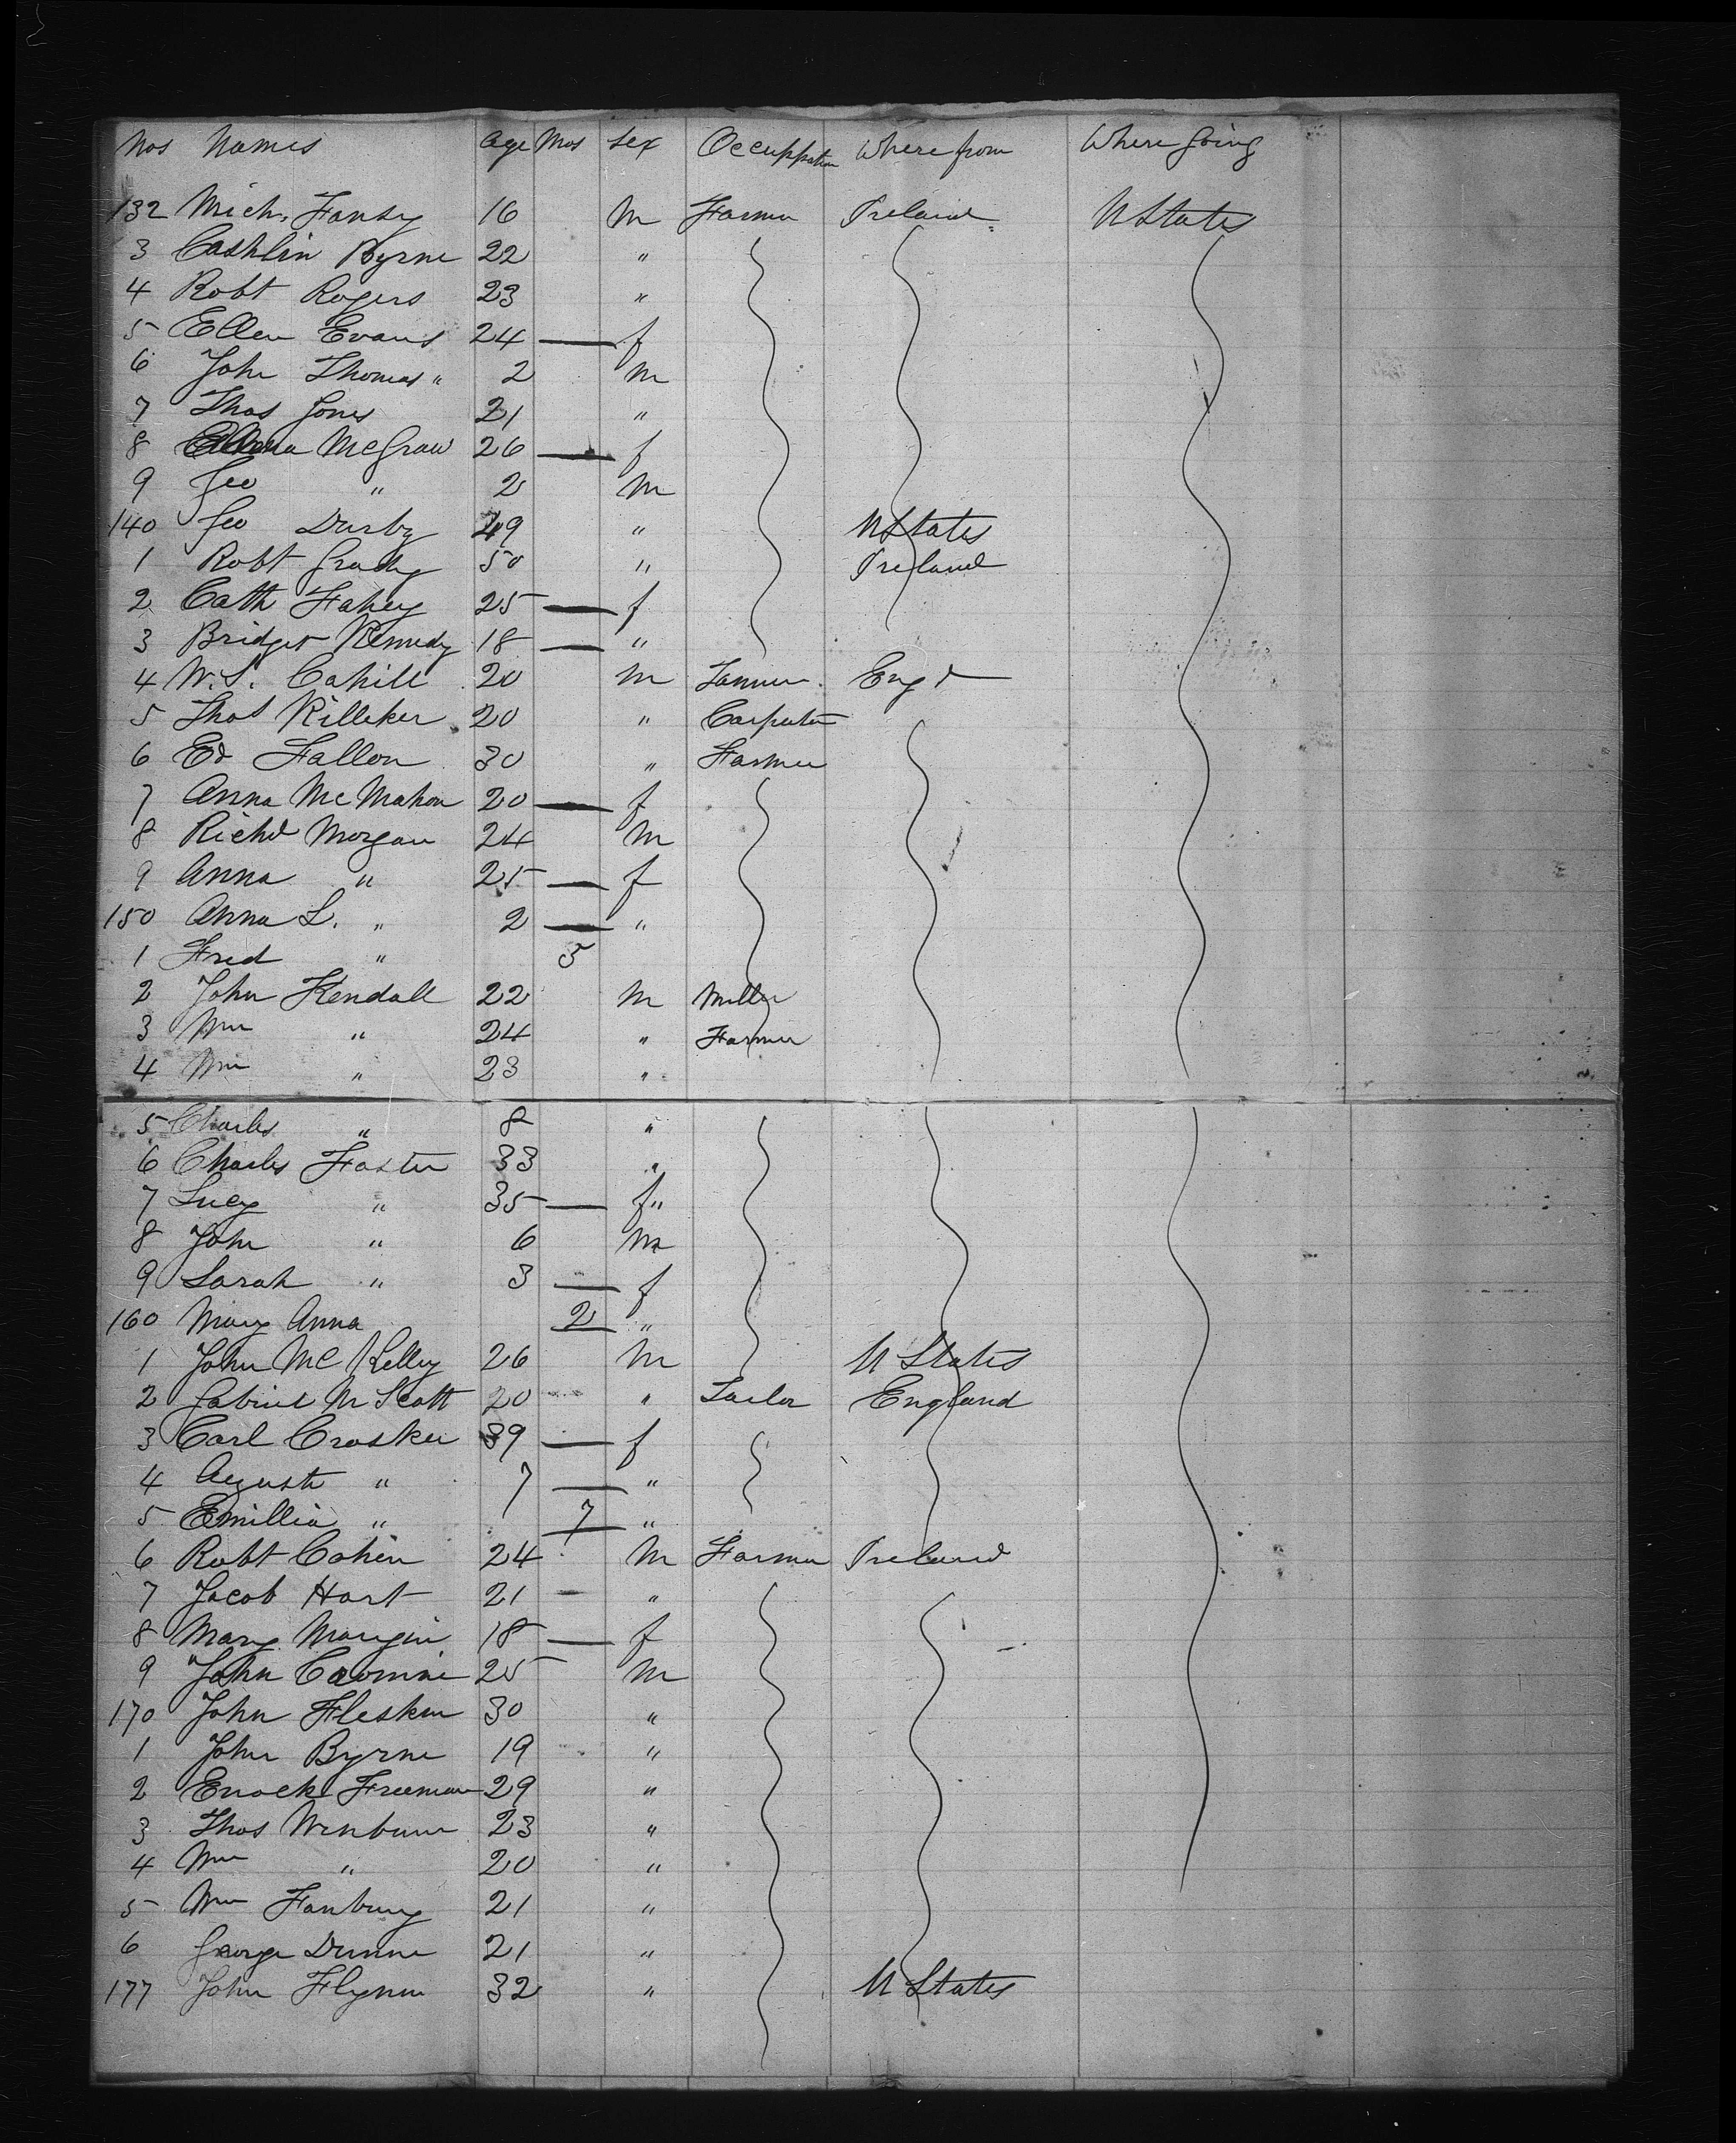 Nos Names Age Mos Sex Occuppation Where from Where going
132 Mich. Fansy 16 M Farmer Ireland U States
3 Cashlin Byrne 22 "
4 Robt Rogers 23 "
5 Ellen Evans 24 — f
6 John Thomas " 2 M
7 Thos Jones 21 "
8 McGraw 26 — f
9 Geo " 2 M
140 Geo Darby 49 " U States
1 Robt Grady 50 " Ireland
2 Cath Fahey 25 — f
3 Bridget Kennedy 18 — "
4 W. S. Cahill 20 M Tanner Engd —
5 Thos Killeker 20 " Carpenter
6 Ed Fallon 30 " Farmer
7 Anna McMahon 20 — f
8 Richd Morgan 24 M
9 Anna " 25 — f
150 Anna L. " 2 — "
1 Fred " 5
2 John Kendall 22 M Miller
3 Wm " 24 " Farmer
4 Wm " 23 "
5 Charles " 8 "
6 Charles Foster 33 "
7 Lucy " 35 — f "
8 John " 6 M
9 Sarah " 3 — f
160 Mary Anna 2 "
1 John McKelly 26 M U States
2 Gabriel M Scott 20 " Tailor England
3 Carl Crosker 39 — f
4 August " 7 — "
5 Emillia " 7 "
6 Robt Cohen 24 M Farmer Ireland
7 Jacob Hart 21 - "
8 Mary Mangin 18 — f
9 John 25 M
170 John Fleskin 30 "
1 John Byrne 19 "
2 Enock Freeman 29 "
3 Thos Wenbum 23 "
4 Wm " 20 "
5 Wm Fanbury 21 "
6 George Dunne 21 "
177 John Flynn 32 " U States